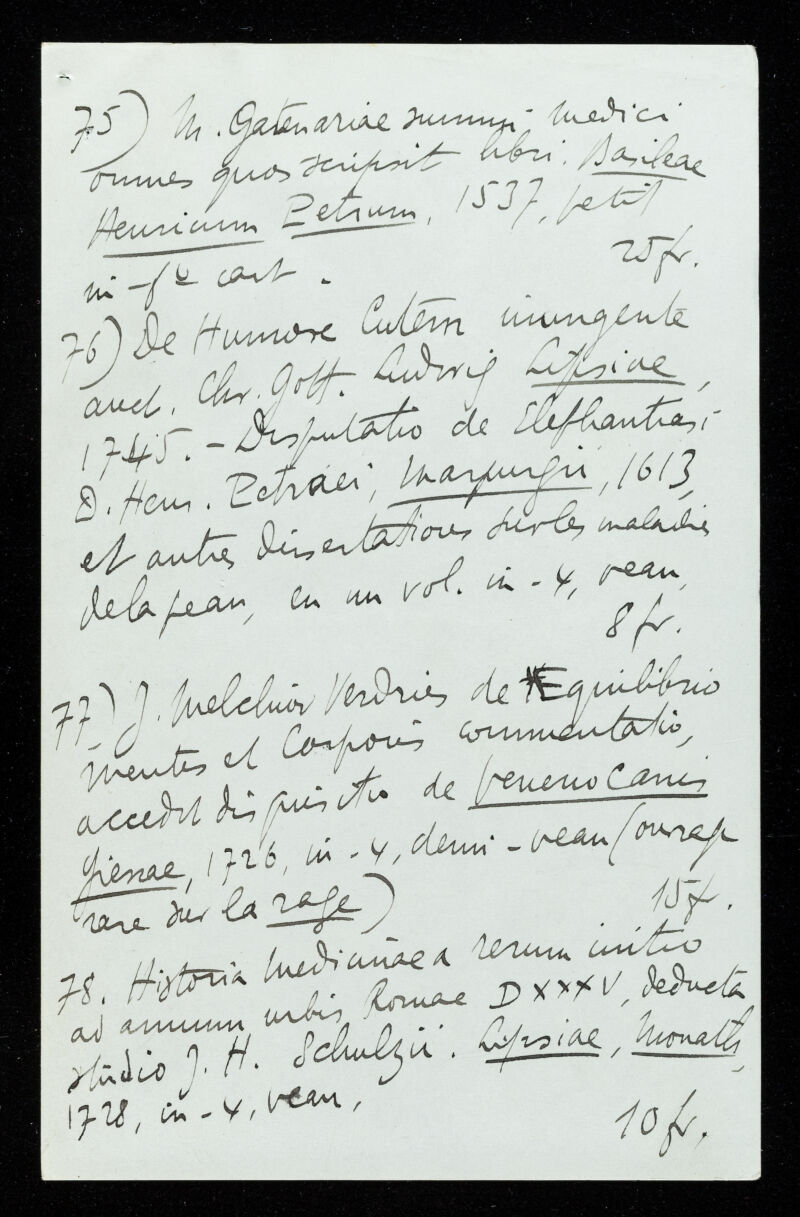 75) M. Gatenariae summi medici
omnes quos scripsit libri. Basileae
Henricum Petrum, 1537, petit
in-fº cart.
25 fr.
76) De Humore Cutem inungente
auct. Chr. Gott. Ludwig Lipsiae,
1745. - Disputatio de Elephantiasi
D. Hen. Petraei, Marpurgii, 1613,
et autres dissertations sur les maladies
de la peau, en un vol. in-4, veau,
8 fr.
77) J. Melchior Verdries de Equilibrio
mentis et Corporis commentatio,
accedit disquisitio de veneno Canis
Giessae, 1726, in-4, demi-veau (ouvrage
rare sur la rage)
15 fr.
78. Historia Medicinae a rerum initio
ad annum urbis Romae DXXXV, deducta
studio J. H. Schulzii. Lipsiae, Monath,
1728, in-4, veau,
10 fr.